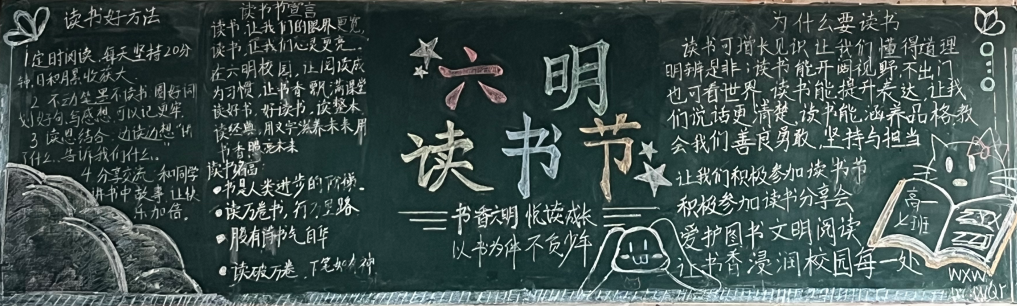 读书好方法
1 定时阅读 每天坚持20分
钟,日积月累收获大
2 不动笔墨不读书 圈好词
划好句 写感想 可以记更牢
3 读思结合 边读边想“讲
了什么,告诉我们什么。
4 分享交流 和同学
讲书中故事 让快
乐加倍。
读书书宣言
读书,让我们的眼界更宽,
读书,让我们心灵更亮
在六明校园,让阅读成
为习惯,让书香飘满课堂
读好书,好读书,读整本
读经典,用文字滋养未来,用
书香照亮未来
读书名言
书是人类进步的阶梯。
读万卷书,行万里路
腹有诗书气自华
读破万卷 下笔如有神
六明
读书节
书香六明 悦读成长
以书为伴 不负少年
为什么要读书
读书可增长见识让我们懂得道理
明辨是非;读书能开阔视野,不出门
也可看世界,读书能提升表达,让我
们说话更清楚,读书能涵养品格,教
会我们善良勇敢,坚持与担当
让我们积极参加读书节
积极参加读书分享会
爱护图书 文明阅读
让书香浸润校园每一处
高一
七班
WXW